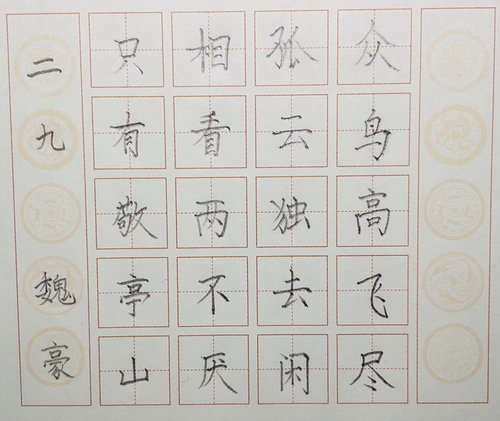 众鸟高飞尽
孤云独去闲
相看两不厌
只有敬亭山
二九 魏豪